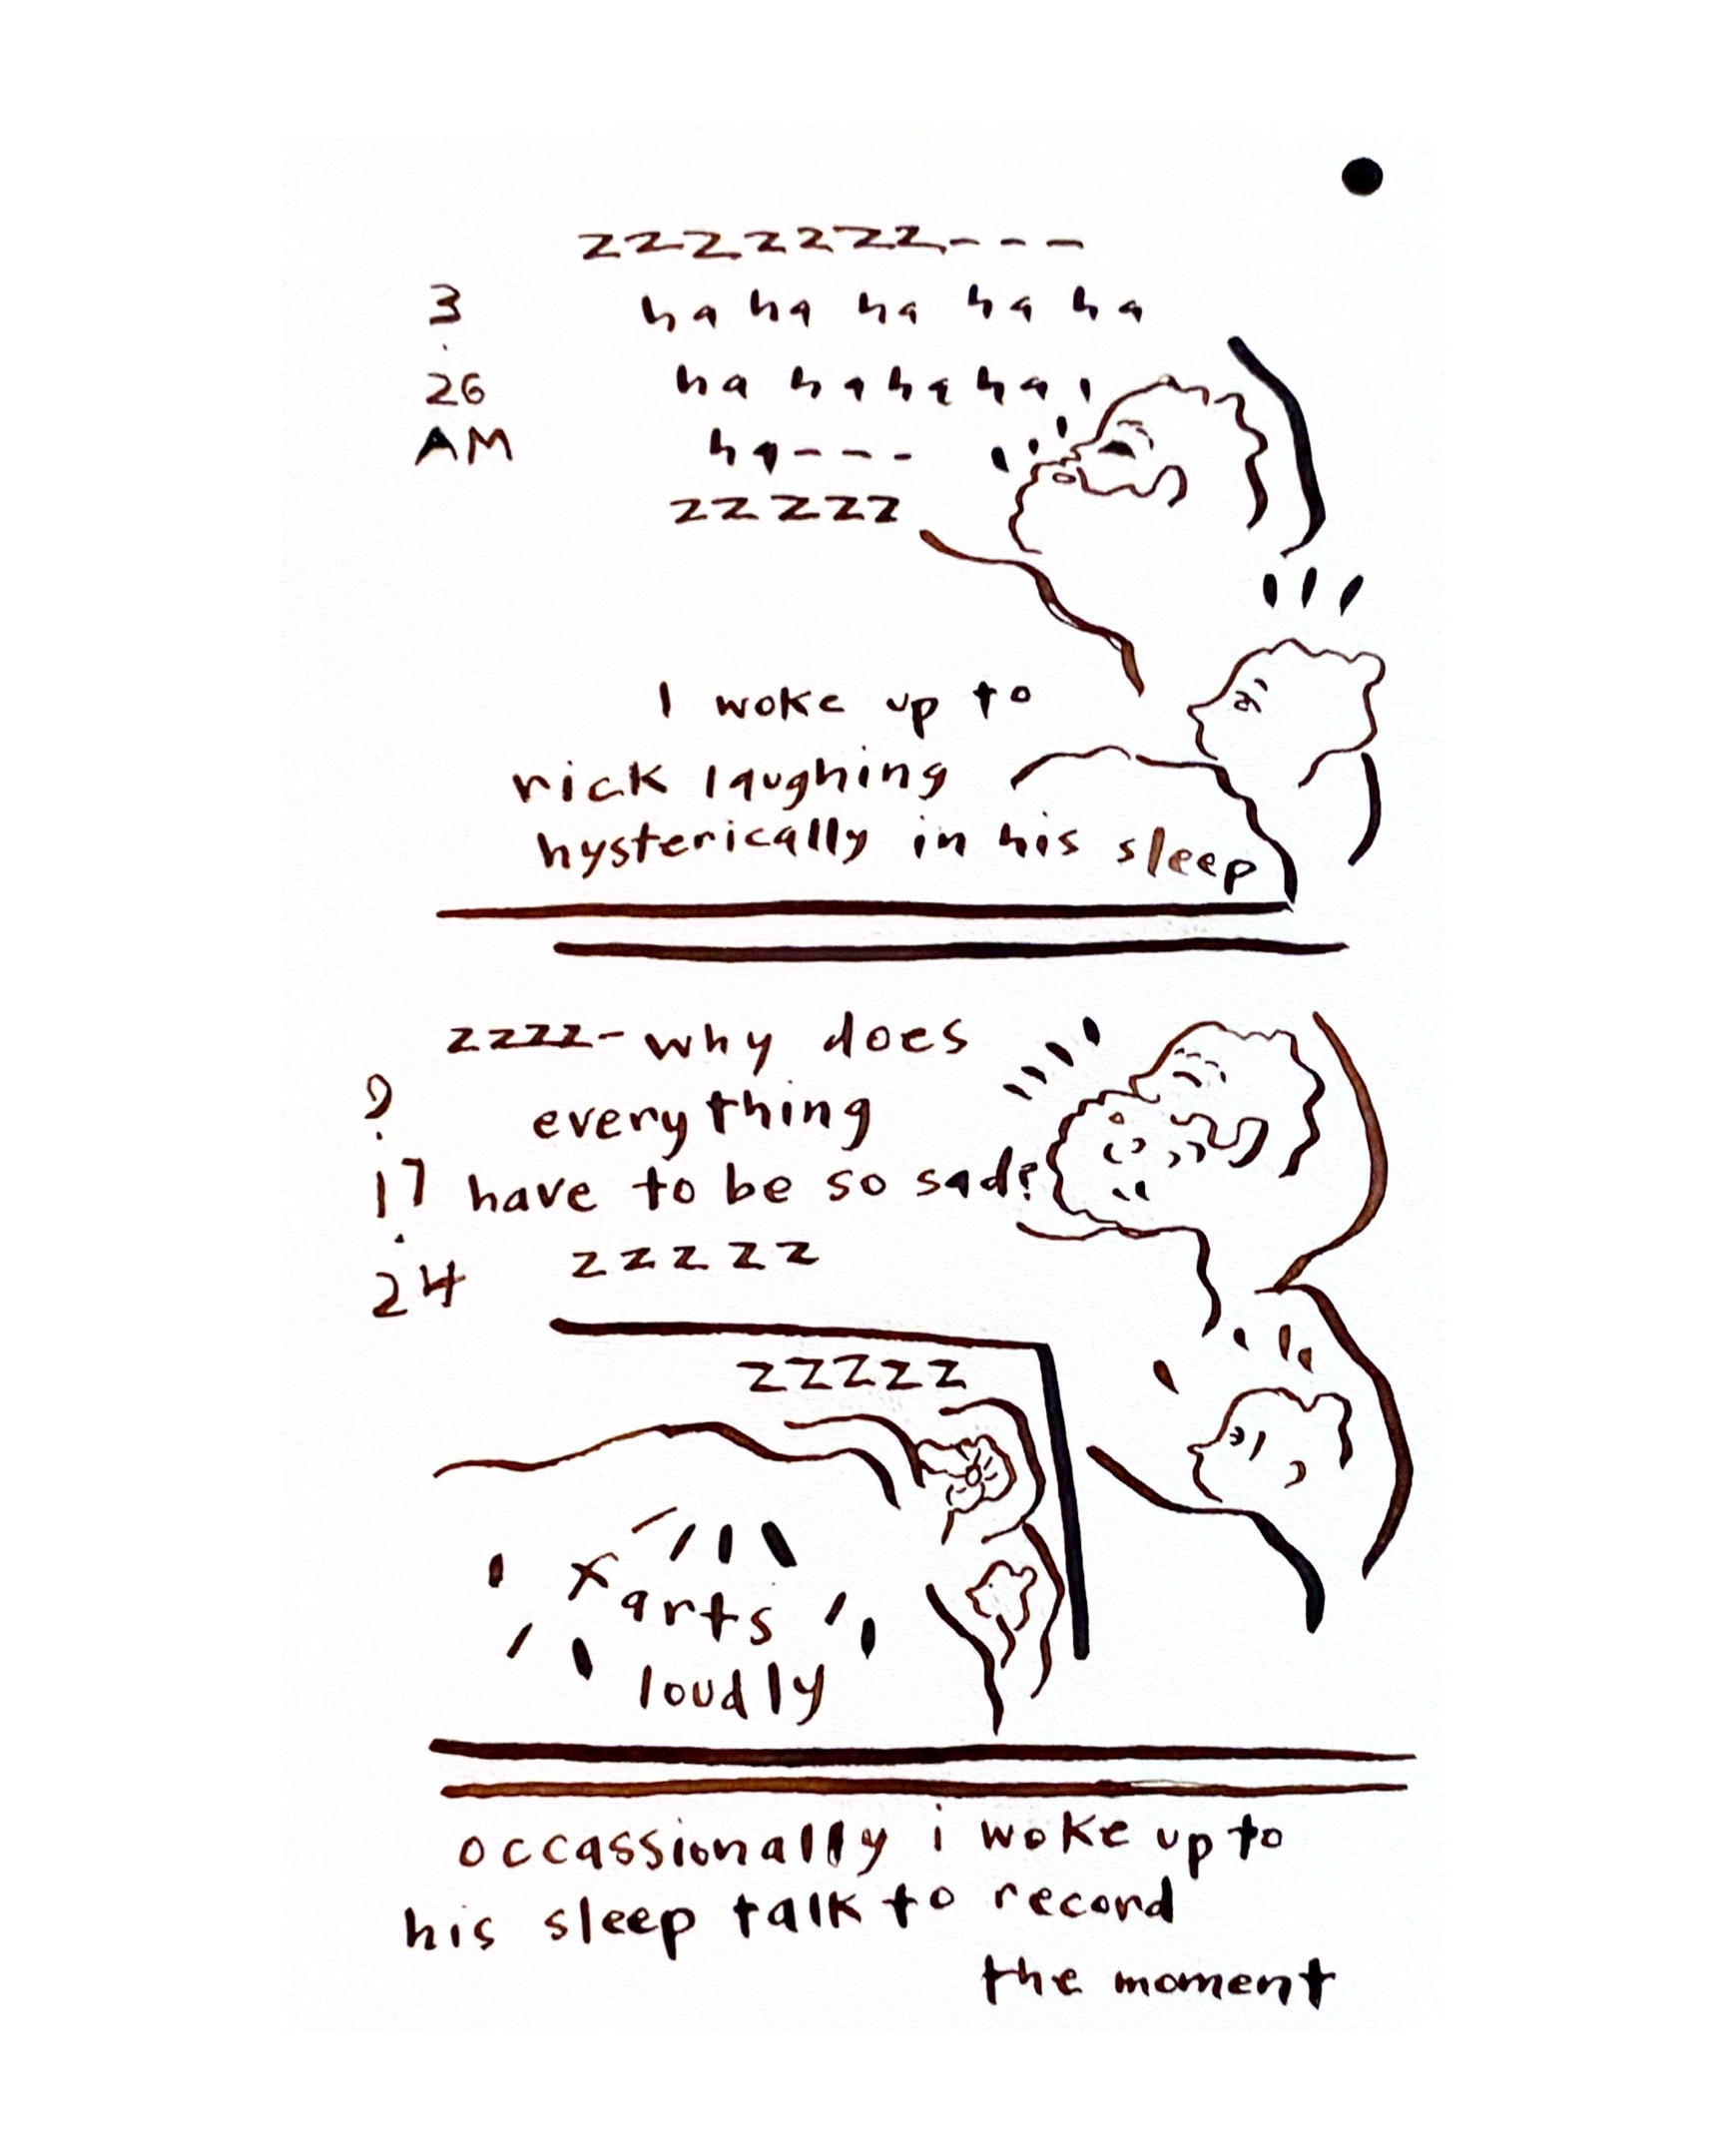 zzzzzzz---
3
.
26
AM
ha ha ha ha ha
ha hahaha
ha---
zzzzz
I woke up to
rick laughing
hysterically in his sleep
zzzz-why does
everything
have to be so sad?
zzzzz
9
.
17
.
24
zzzzz
farts
loudly
occassionally i woke up to
his sleep talk to record
the moment